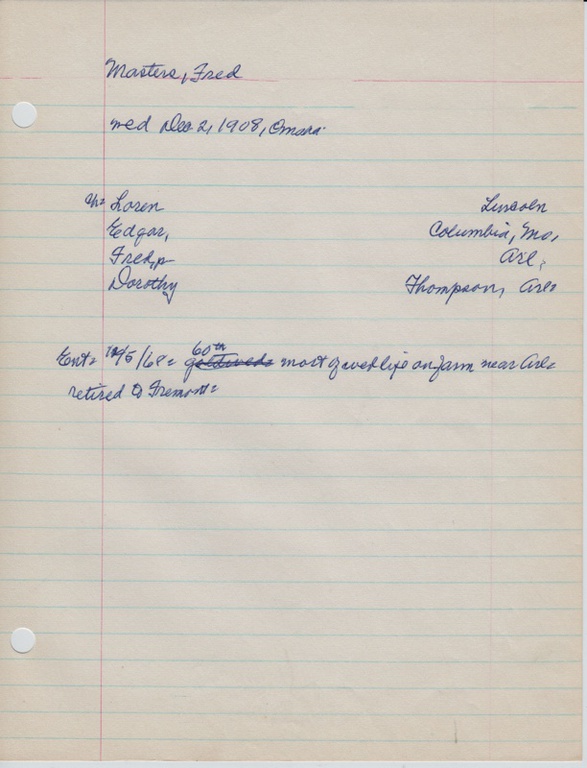 Masters, Fred
wed Dec 2, 1908, Omaha
Ch= Loren Lincoln
Edgar, Columbia, Mo,
Fred, Arl,
Dorothy Thompson, Arl=
Ent= 12/5/68= 60th goldwed= most of wed life on farm near Arl=
retired to Fremont=